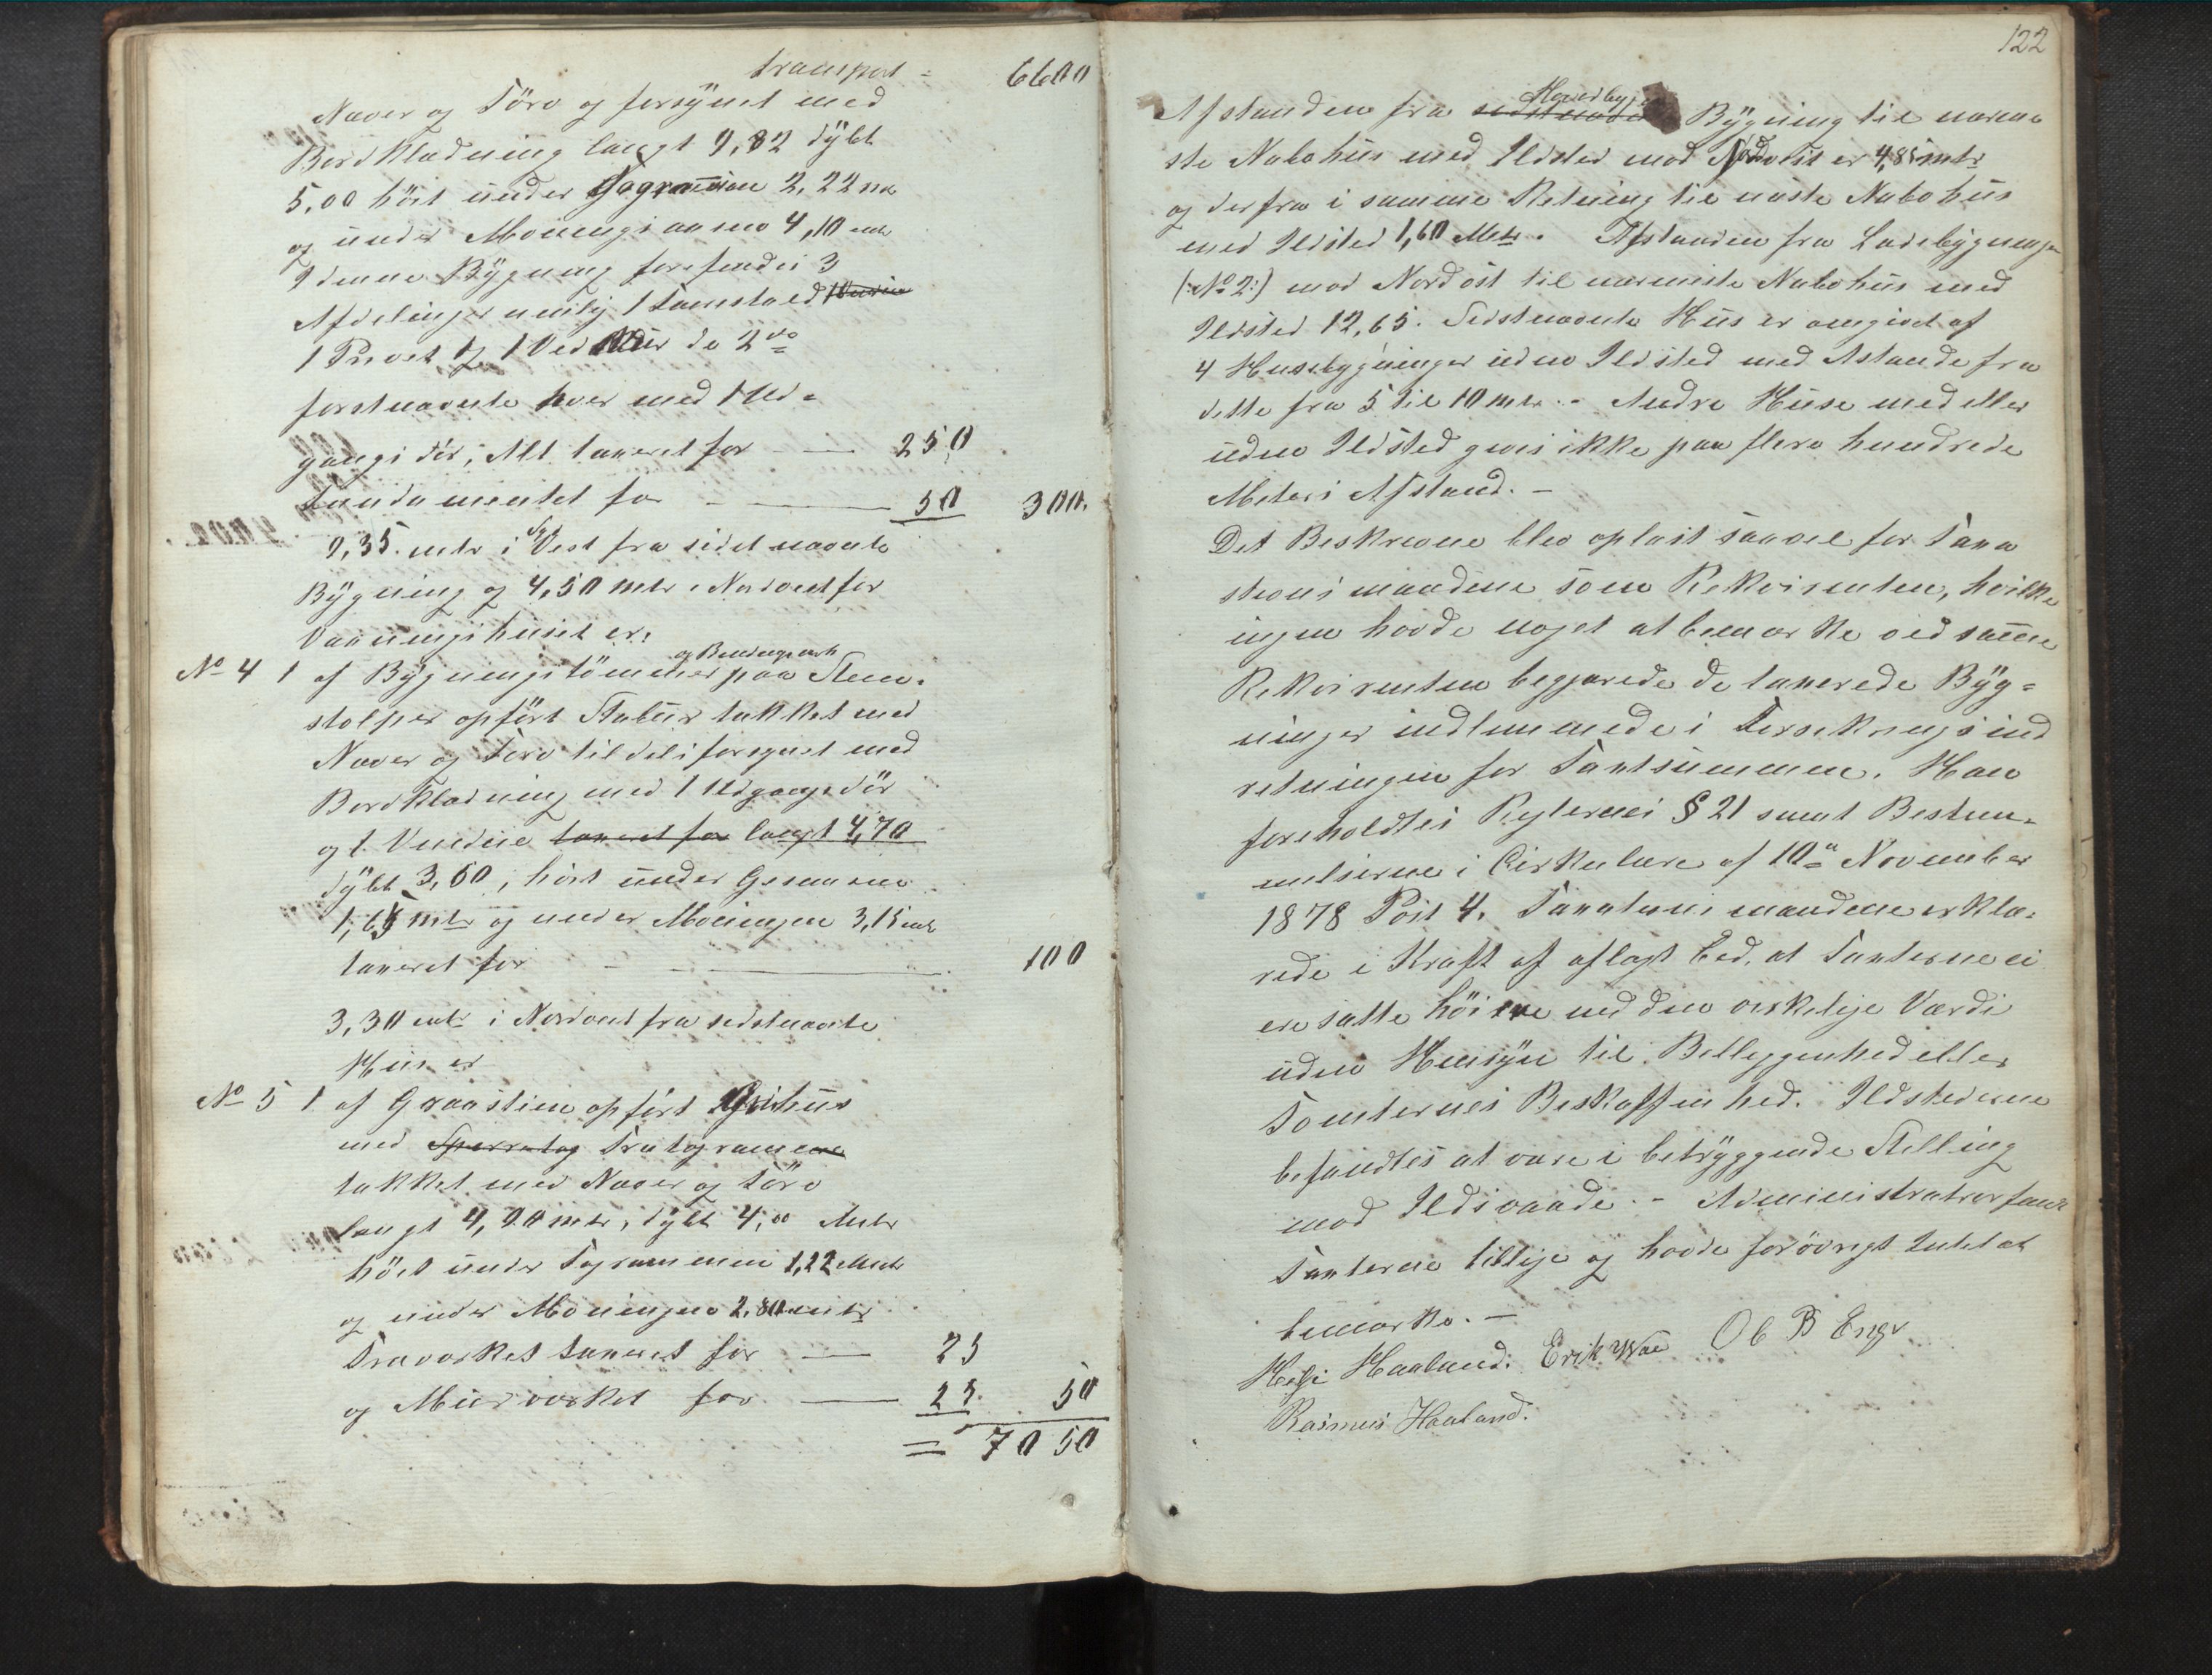 transport = 6600
Næver og Törv og forsynet med
Bordklædning langt 9,82 dybt
5,00 höit under Tagrammen 2,22 mtr
og under Möningsaasen 4,10 mtr
I denne Bygning forefindes 3
Afdelinger nemlig 1 Tømstald
1 Privet og 1 Ved de 2de
forstnævnte hver med 1 Ud=
gangsdör, Alt taxeret for — 250
Fundamentet for — 50 300.
9,35 mtr i SyVest fra sidstnævnte
Bygning og 4,50 mtr i Nordvest for
Vaaningshuset er,
No 4 1 af Bygningstömmer og Bindingsverk paa Steen=
stolper opfört Stabur takket med
Næver og Törv tildels forsynet med
Bordklædning med 1 Udgangsdör
og 1 Vindue taxeret for langt 4,70
dybt 3,60, höit under Gesimsen
1,65 mtr og under Möningen 3,15 mtr
taxeret for — 100
3,30 mtr i Nordvest fra sidstnævnte
Hus er
No 5 1 af Graasteen opfört Grishus
med Sperretag Trætagrammer
takket med Næver og törv
langt 4,90 mtr, dybt 4,00 Mtr
höit under Tagrammen 1,22 Mtr
og under Möningen 2,80 mtr
Træverket taxeret for — 25
og Muurverket for — 25. 50
= 7050
122
Afstanden fra sidstnævnte Hovedbyg Bygning til nærme
ste Nabohus med Ildsted mod Nordost er 4,85 mtr
og derfra i samme Retning til næste Nabohus
med Ildsted 1,60 Mtr. Afstanden fra Ladebygningen
(:No 2:) mod Nordöst til nærmeste Nabohus med
Ildsted 12,65. Sidstnævnte Hus er omgivet af
4 Huusbygninger uden Ildsted med Astande fra
dette fra 5 til 10 mtr. - Andre Huse med eller
uden Ildsted gives ikke paa flere hundrede
Meters Afstand. -
Det Beskrevne blev oplæst saavel for Taxa
stionsmændene som Rekvirenten, hvilke
ingen havde noget at bemærke ved samme
Rekvirenten begjærede de taxerede Byg=
ninger indlemmede i Forsikringsind
retningen for Taxtsummen. Han
foreholdtes Reglernes § 21 samt Bestem=
melserne i Cirkulære af 10de November
1878 Post 4. Taxationsmændene erklæ=
rede i Kraft af aflagt Eed, at Taxterne ei
ere satte höiere end den virkelige Værdi
uden Hensyn til Belleggenhed eller
Tomternes Beskaffenhed. Ildstederne
befandtes at være i betryggende Stilling
mod Ildsvaade. - Administrator fandt
Taxterne billige og havde forövrigt Intet at
bemærke. -
Helje Haaland. Erik Wae Ol B Enge
Rasmus Haaland.